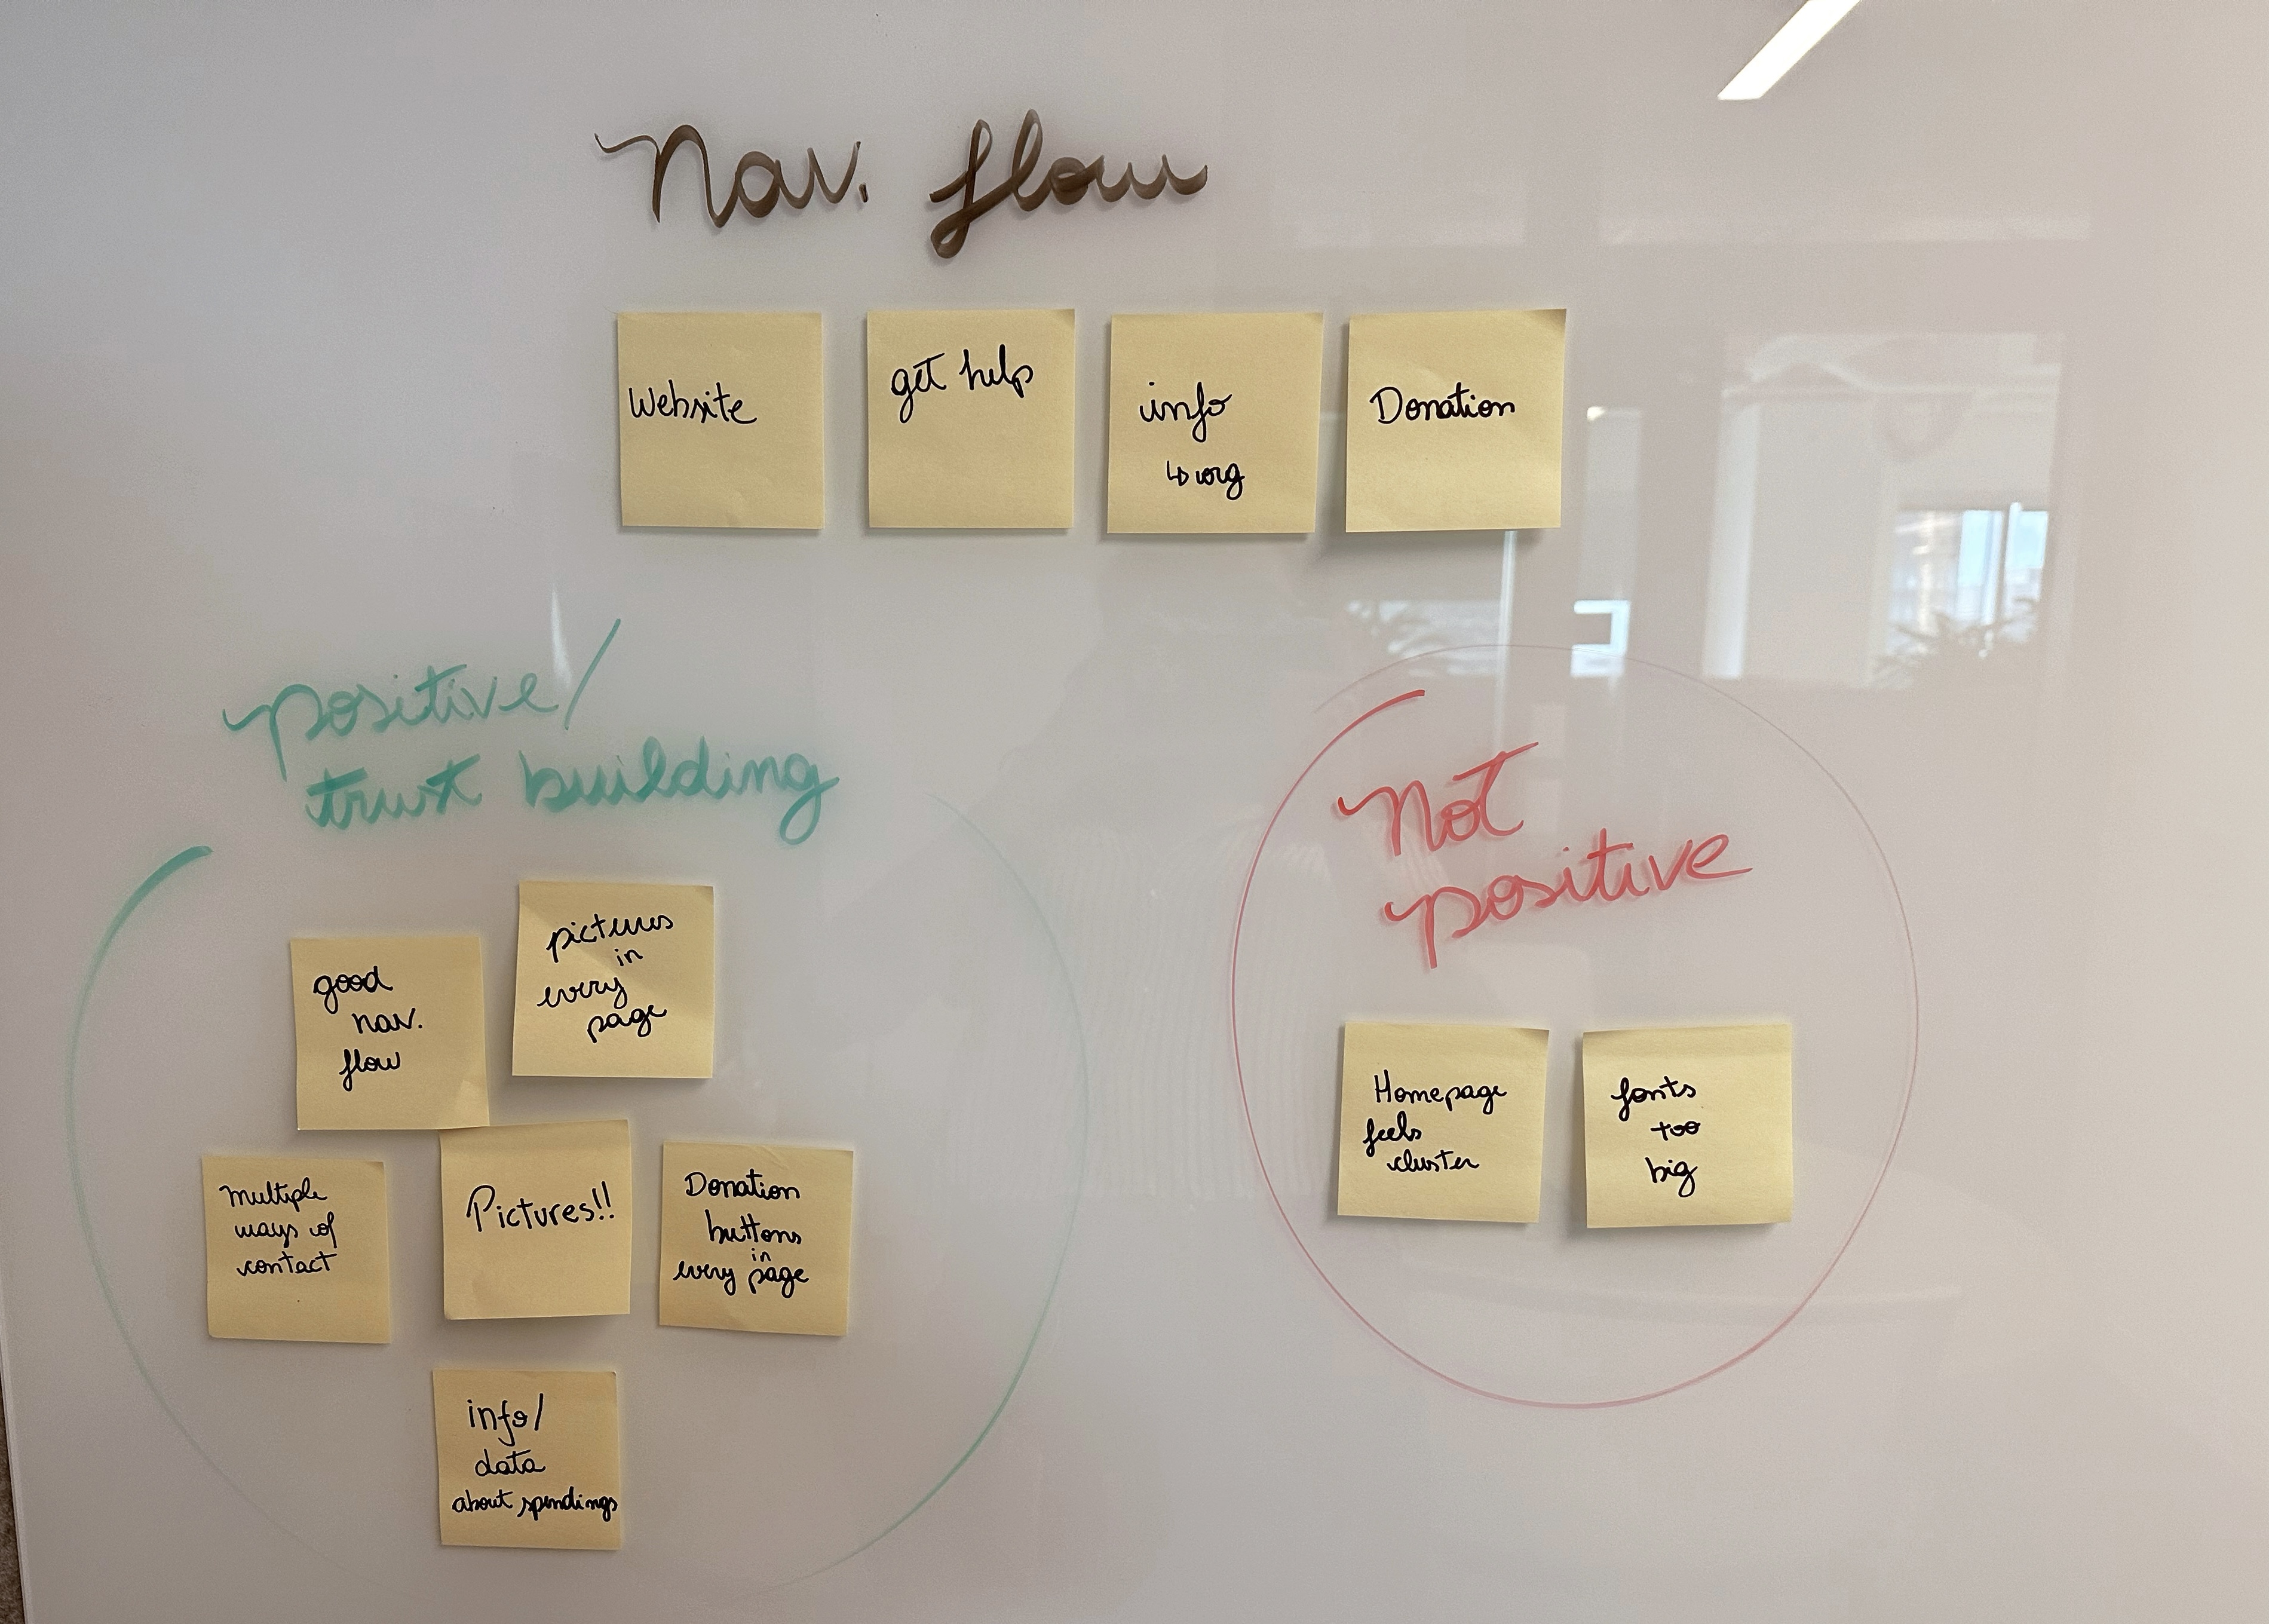 Nav. flow
Website
get help
info
↳ org
Donation
positive/
trust building
good
nav.
flow
pictures
in
every
page
Multiple
ways of
contact
Pictures!!
Donation
buttons
in
every page
info/
data
about spendings
Not
positive
Homepage
feels
cluster
fonts
too
big